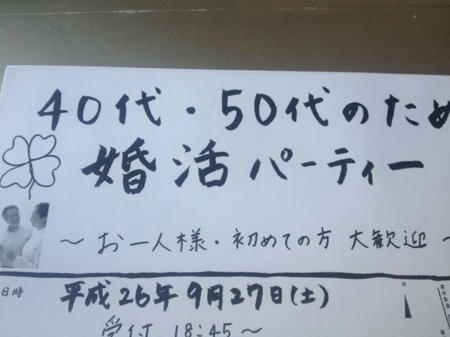 40代・50代のため
婚活パーティー
～お一人様・初めての方 大歓迎～
日時 平成26年9月27日(土)
受付 18:45～